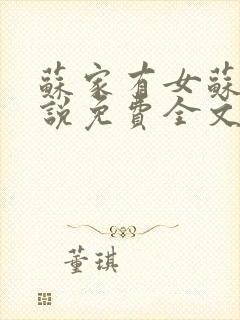 蘇家有女蘇
說免費全文
董琪